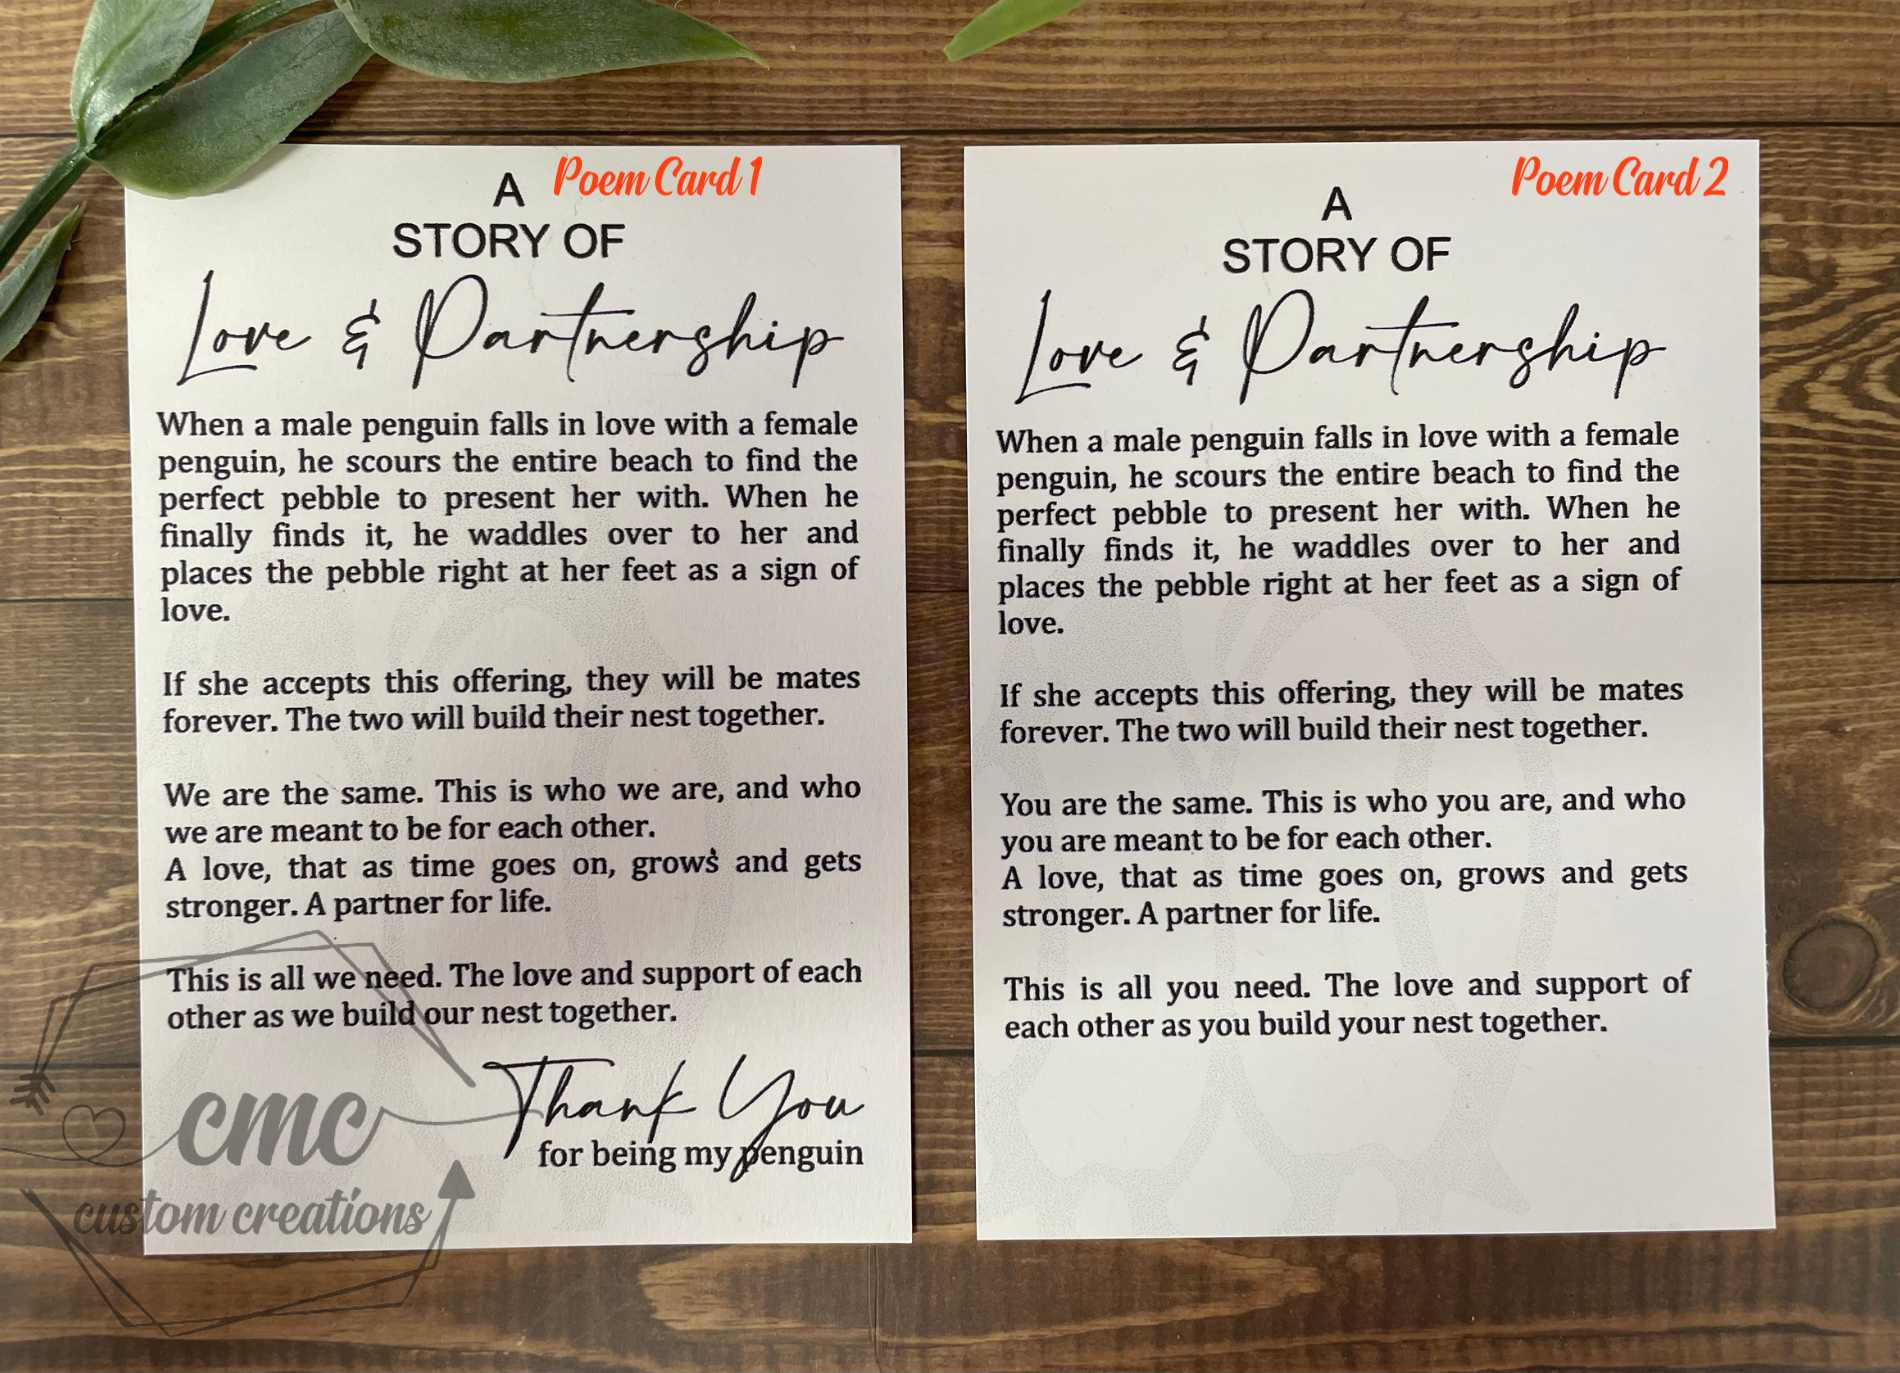 Poem Card 1
A
STORY OF
Love & Partnership
When a male penguin falls in love with a female
penguin, he scours the entire beach to find the
perfect pebble to present her with. When he
finally finds it, he waddles over to her and
places the pebble right at her feet as a sign of
love.
If she accepts this offering, they will be mates
forever. The two will build their nest together.
We are the same. This is who we are, and who
we are meant to be for each other.
A love, that as time goes on, grows and gets
stronger. A partner for life.
This is all we need. The love and support of each
other as we build our nest together.
Thank You
for being my penguin
cmc
custom creations
Poem Card 2
A
STORY OF
Love & Partnership
When a male penguin falls in love with a female
penguin, he scours the entire beach to find the
perfect pebble to present her with. When he
finally finds it, he waddles over to her and
places the pebble right at her feet as a sign of
love.
If she accepts this offering, they will be mates
forever. The two will build their nest together.
You are the same. This is who you are, and who
you are meant to be for each other.
A love, that as time goes on, grows and gets
stronger. A partner for life.
This is all you need. The love and support of
each other as you build your nest together.